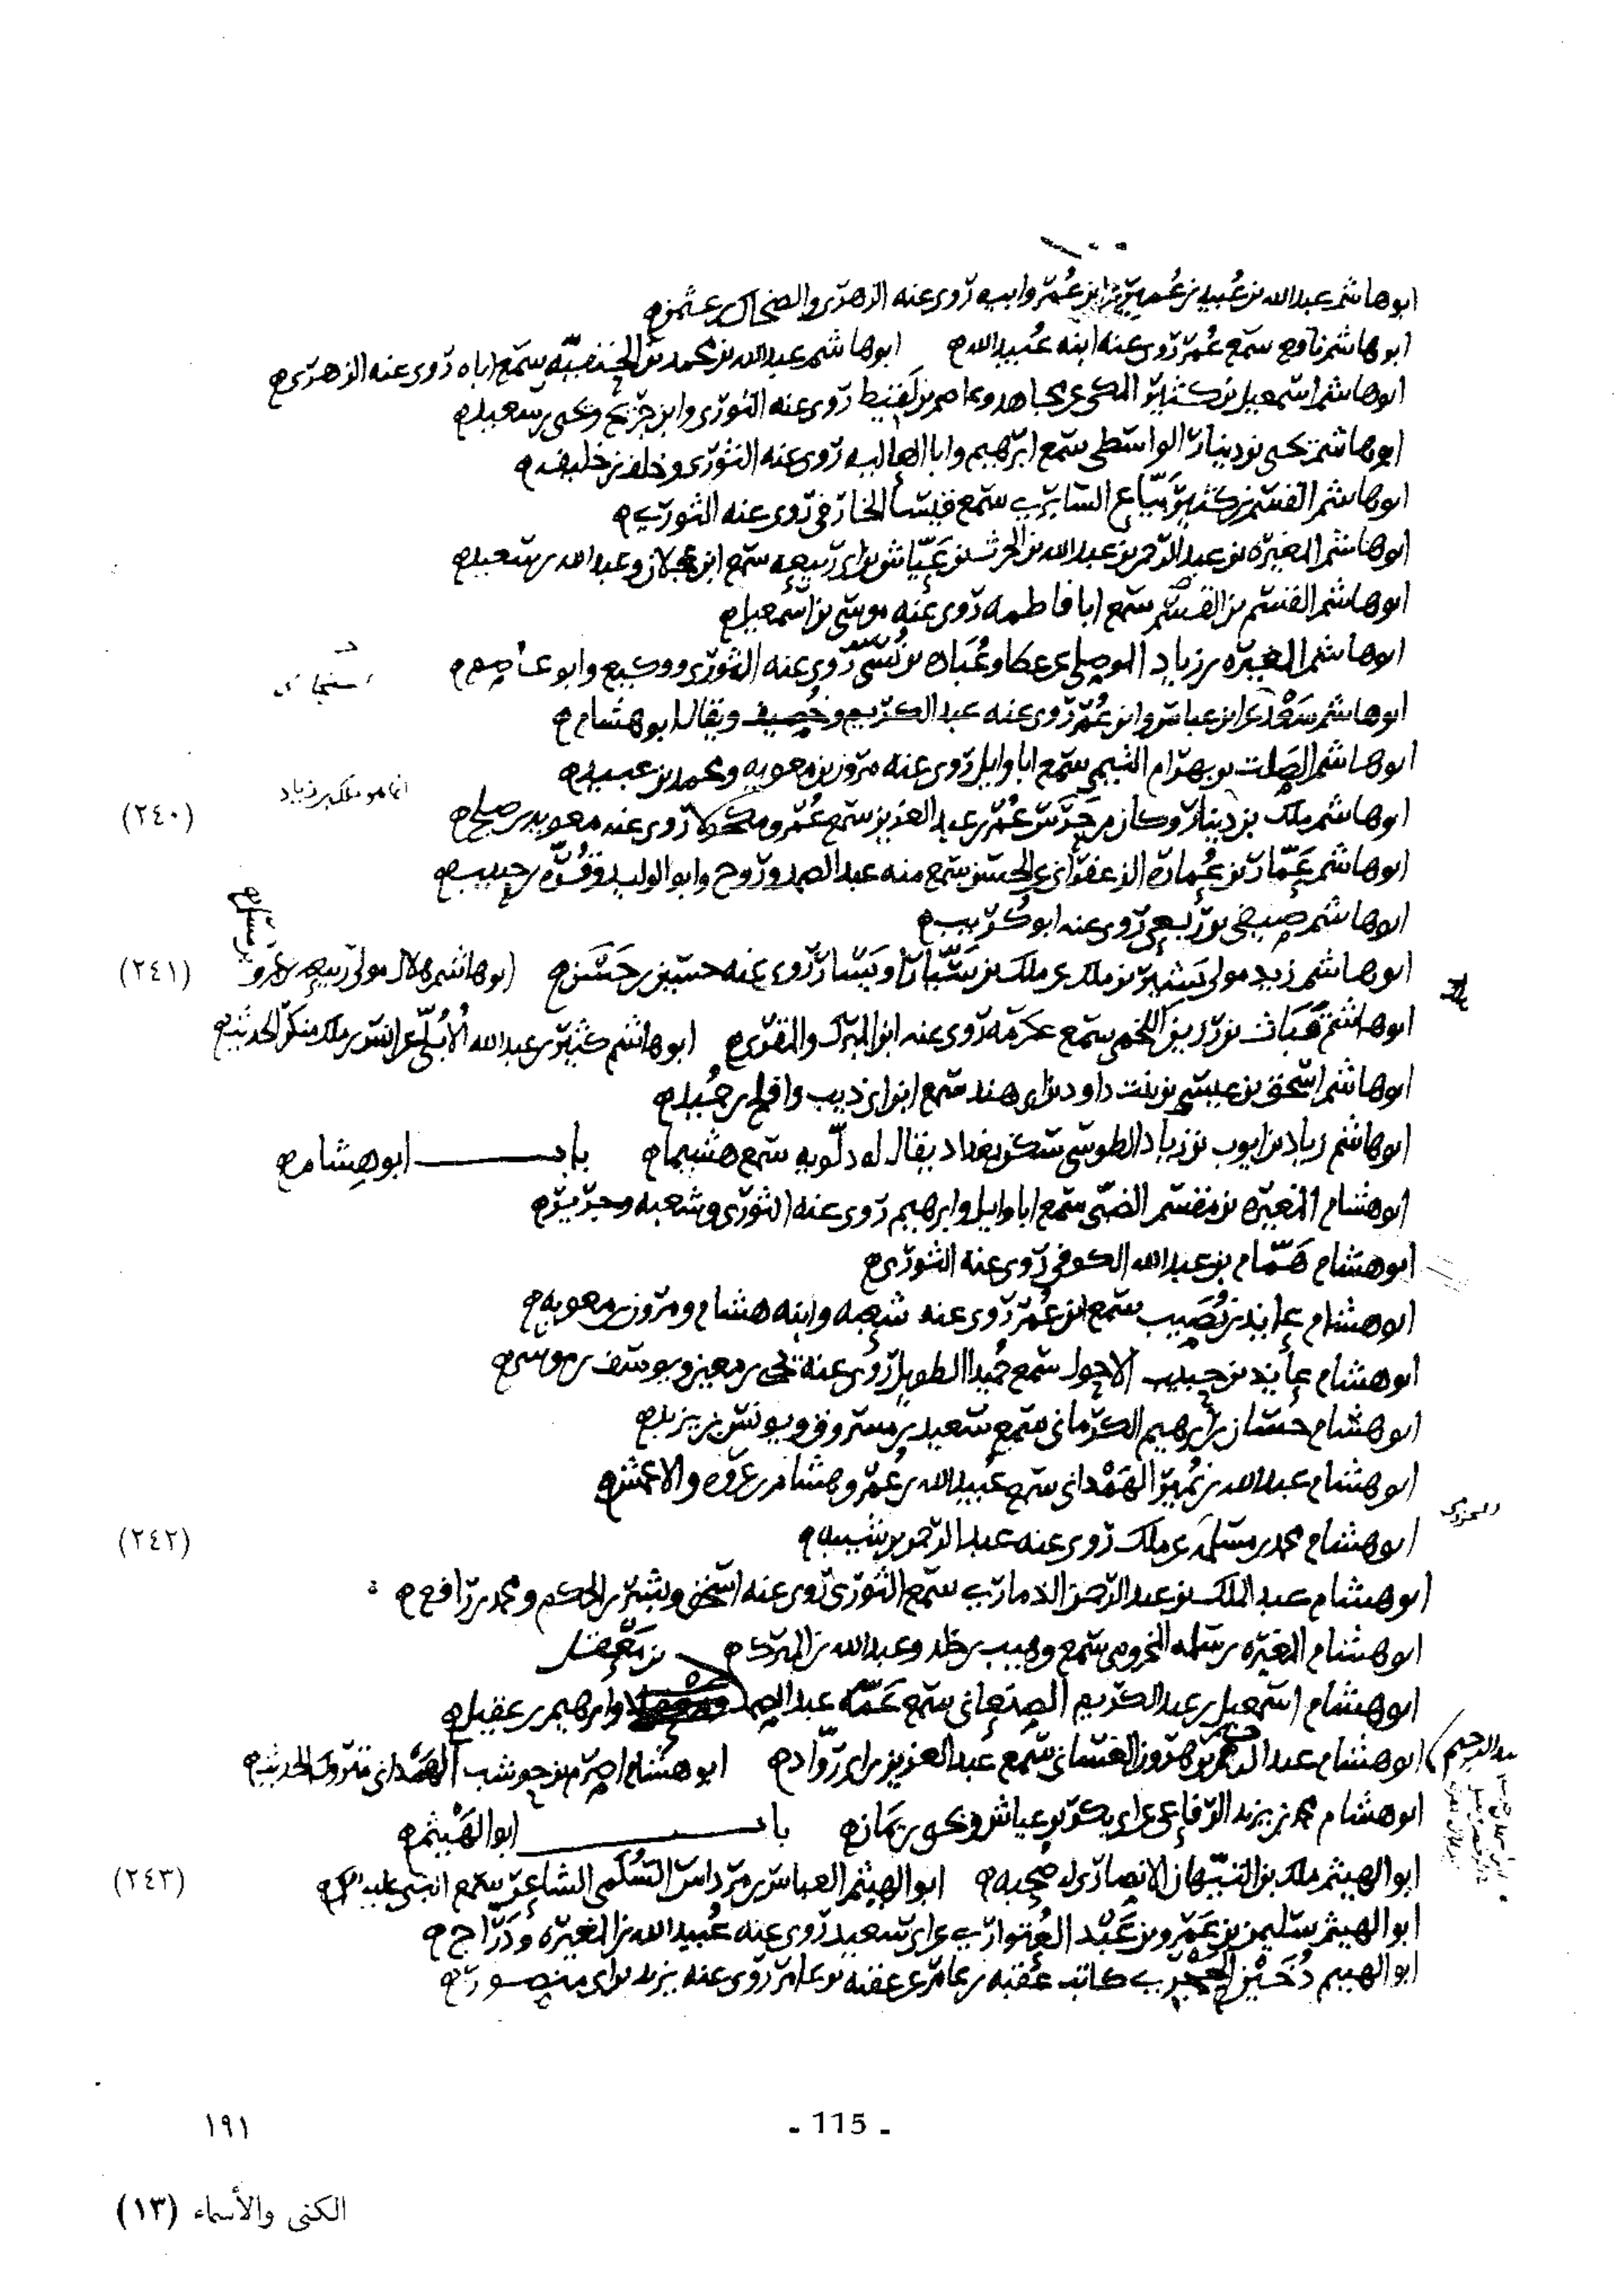 ابو هاشم عبد الله بن عبيد بن عمير عن ابن عمر وابيه روى عنه الزهرى والضحاك بن عثمن
ابو هاشم نافع سمع عمر روى عنه ابنه عبيد الله ابو هاشم عبد الله بن محمد بن الحنفيه سمع اباه روى عنه الزهرى
ابو هاشم اسمعيل بن كثير المكى عن مجاهد وعاصم بن لقيط روى عنه الثورى وابن جريج ويحيى بن سعيد
ابو هاشم يحيى بن دينار الواسطى سمع ابرهيم وابا العاليه روى عنه الثورى وخلف بن خليفه
ابو هاشم القسم بن كثير بياع السابرى سمع قيسا الخارفى روى عنه الثورى
ابو هاشم المغيره بن عبد الرحمن بن عبد الله بن الحرث بن عياش بن ابى ربيعه سمع ابن عجلان وعبد الله بن سعيد
ابو هاشم القسم بن القسم سمع ابا فاطمه روى عنه موسى بن اسمعيل
ابو هاشم المغيره بن زياد الموصلى عن عطا وعباده بن نسى روى عنه الثورى ووكيع وابو عاصم
ابو هاشم سعد عن ابن عباس وابن عمر روى عنه عبد الكريم وخصيف ويقال ابو هشام
ابو هاشم الصلت بن بهرام التيمى سمع ابا وايل روى عنه مرون بن معويه ومحمد بن عبيد
انما هو ملك بن زياد
(٢٤٠)
ابو هاشم ملك بن دينار وكان من حرس عمر بن عبد العزيز سمع عمر ومكحولا روى عنه معويه بن صلح
ابو هاشم عمار بن عماره الزعفرانى عن الحسن سمع منه عبد الصمد وروح وابو الوليد وقره بن حبيب
ابو هاشم صيفى بن ربعى روى عنه ابو كريب
(٢٤١)
ابو هاشم زيد مولى بشير بن ملك عن ملك بن شيبان او يسار روى عنه حسين بن حسن ابو هاشم هلال مولى ربيعه بن عمرو
ابو هاشم قباث بن رزين اللخمى سمع عكرمه روى عنه ابن المبرك والمقرى ابو هاشم كثير بن عبد الله الأبلى عن انس بن ملك منكر الحديث
ابو هاشم اسحق بن عيسى بن بنت داود بن ابى هند سمع ابن ابى ذيب وافلح بن حميد
ابو هاشم زياد بن ايوب بن زياد الطوسى سكن بغداد يقال له دلويه سمع هشيما باب ابو هشام
ابو هشام المغيره بن مقسم الضبى سمع ابا وايل وابرهيم روى عنه الثورى وشعبه وجرير
ابو هشام همام بن عبد الله الكوفى روى عنه الثورى
ابو هشام عايذ بن نصيب سمع ابن عمر روى عنه شعبه وابنه هشام ومرون بن معويه
ابو هشام عايذ بن حبيب الاحول سمع حميدا الطويل روى عنه يحيى بن معين ويوسف بن موسى
ابو هشام حسان بن ابرهيم الكرمانى سمع سعيد بن مسروق ويونس بن يزيد
ابو هشام عبد الله بن نمير الهمدانى سمع عبيد الله بن عمر وهشام بن عروه والاعمش
(٢٤٢)
ابو هشام محمد بن مسلمه عن ملك روى عنه عبد الرحمن بن شيبه
ابو هشام عبد الملك بن عبد الرحمن الذمارى سمع الثورى روى عنه اسحق وبشر بن الحكم ومحمد بن رافع
ابو هشام المغيره بن سلمه المخزومى سمع وهيب بن خلد وعبد الله بن المبرك
بن معقل
ابو هشام اسمعيل بن عبد الكريم الصنعانى سمع عمه عبد الصمد وابرهيم بن عقيل
عبد الرحيم
ابو هشام عبد الرحمن بن هرون الغسانى سمع عبد العزيز بن ابى رواد ابو هشام اصرم بن حوشب الهمدانى متروك الحديث
ابو هشام محمد بن يزيد الرفاعى عن ابى بكر بن عياش ويحيى بن يمان باب ابو الهيثم
(٢٤٣)
ابو الهيثم ملك بن التيهان الانصارى له صحبه ابو الهيثم العباس بن مرداس السلمى الشاعر سمع النبى عليه السلم
ابو الهيثم سليمن بن عمرو بن عبد العتوارى عن ابى سعيد روى عنه عبيد الله بن المغيره ودراج
ابو الهيثم دخين الحجرى كاتب عقبه بن عامر عن عقبه بن عامر روى عنه يزيد بن ابى منصور
١٩١
- 115 -
الكنى والأسماء (١٣)